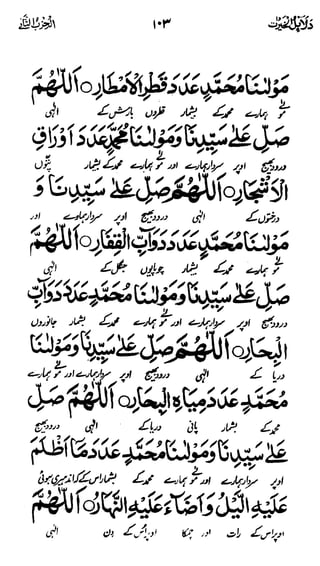 دلائل الخيرات ١٠٣ الحزب الثانی
مَوْلٰىنَا مُحَمَّدٍ عَدَدَ قَطْرِ الْاَمْطَارِ اَللّٰهُمَّ
مولٰے ہمارے محمد کے بشمار قطروں بارش کے الٰہی
صَلِّ عَلٰى سَيِّدِنَا وَمَوْلٰىنَا مُحَمَّدٍ عَدَدَ اَوْرَاقِ
درود بھیج اوپر سردار ہمارے اور مولٰے ہمارے محمد کے بشمار پتوں
الْاَشْجَارِ اَللّٰهُمَّ صَلِّ عَلٰى سَيِّدِنَا وَ
درختوں کے الٰہی درود بھیج اوپر سردار ہمارے اور
مَوْلٰىنَا مُحَمَّدٍ عَدَدَ دَوَآبِّ الْقِفَارِ اَللّٰهُمَّ
مولٰے ہمارے محمد کے بشمار چوپایوں جنگل کے الٰہی
صَلِّ عَلٰى سَيِّدِنَا وَمَوْلٰىنَا مُحَمَّدٍ عَدَدَ دَوَآبِّ
درود بھیج اوپر سردار ہمارے اور مولٰے ہمارے محمد کے بشمار جانوروں
الْبِحَارِ اَللّٰهُمَّ صَلِّ عَلٰى سَيِّدِنَا وَمَوْلٰىنَا
دریا کے الٰہی درود بھیج اوپر سردار ہمارے اور مولٰے ہمارے
مُحَمَّدٍ عَدَدَ مِيَاهِ الْبِحَارِ اَللّٰهُمَّ صَلِّ
محمد کے بشمار پانی دریا کے الٰہی درود بھیج
عَلٰى سَيِّدِنَا وَمَوْلٰىنَا مُحَمَّدٍ عَدَدَ مَا اَظْلَمَ
اوپر سردار ہمارے اور مولٰے ہمارے محمد کے بشمار اس کے کہ اندھیری ہوئی
عَلَيْهِ الَّيْلُ وَاَضَآءَ عَلَيْهِ النَّهَارُ اَللّٰهُمَّ
اوپر اس کے رات اور چمکا اوپر اس کے دن الٰہی